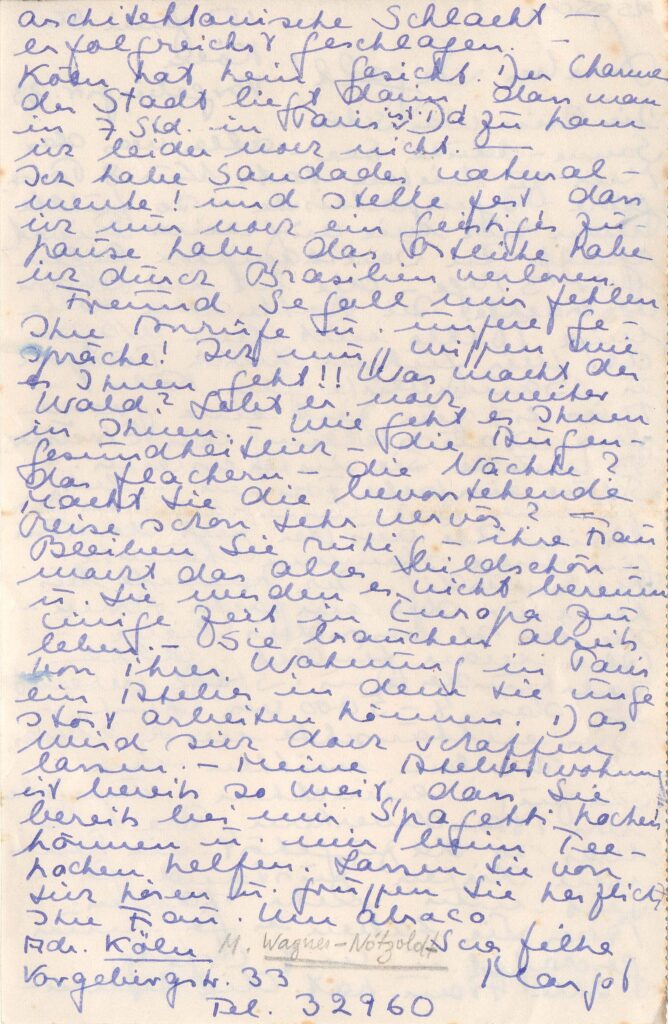 architektonische Schlacht –
erfolgreichst geschlagen. –
Köln hat kein Gesicht. Der Charme
der Stadt liegt darin dass man
in 7 Std. in Paris ist. Da zu kam
ich leider noch nicht. –
Ich habe Saudades natural-
mente! und stelle fest dass
ich nur noch ein geistiges Zu-
hause habe, das örtliche habe
ich durch Brasilien verloren.
Freund Segall mir fehlen
Ihre Anrufe u. unsere Ge-
spräche! Ich muss wissen wie
es Ihnen geht!! Was macht der
Wald? Lebt er noch weiter
in Ihnen. – Wie geht es Ihnen
gesundheitlich – die Augen –
das flackern – die Nächte?
Macht Sie die bevorstehende
Reise schon sehr nervös? –
Bleiben Sie ruhig – ihre Frau
macht das alles bildschön –
u. Sie werden es nicht bereuen
einige Zeit in Europa zu
leben. – Sie brauchen abseits
von ihrer Wohnung in Paris
ein Atelier in dem Sie unge
stört arbeiten können. Das
wird sich doch schaffen
lassen. – Meine Atelierwohnung
ist bereits so weit, dass Sie
bereits bei mir Spagetti kochen
können u. mir beim Tee-
kochen helfen. Lassen Sie von
sich hören u. grüssen Sie herzlich
Ihre Frau. Um abraco
Adr. Köln M. Wagner-Nötzoldt Sua filha
Vorgebirgstr. 33 Margot
Tel. 32960